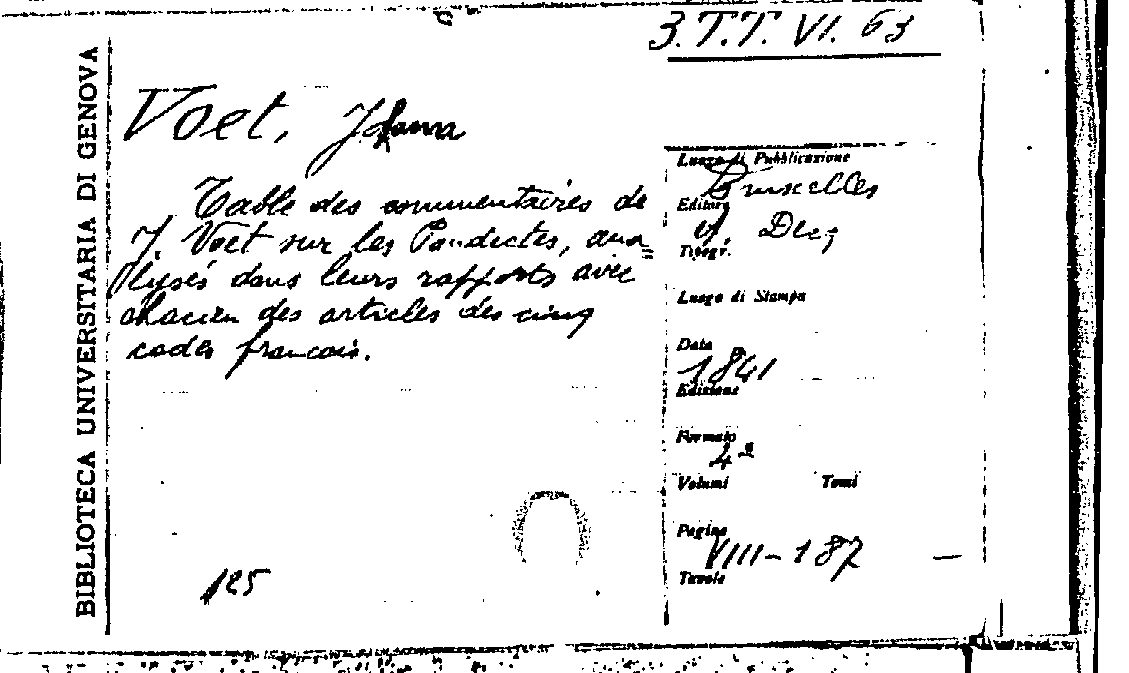 3.T.T. VI. 63
BIBLIOTECA UNIVERSITARIA DI GENOVA
Voet,
Table des commentaires de
J. Voet sur les Pandectes, ana=
lysés dans leurs rapports avec
chacun des articles des cinq
codes français.
125
Luogo di Pubblicazione
Bruxelles
Editore
Tipogr.
Luogo di Stampa
Data
1841
Edizione
Formato
4º
Volumi Tomi
Pagine
VIII-187
Tavole